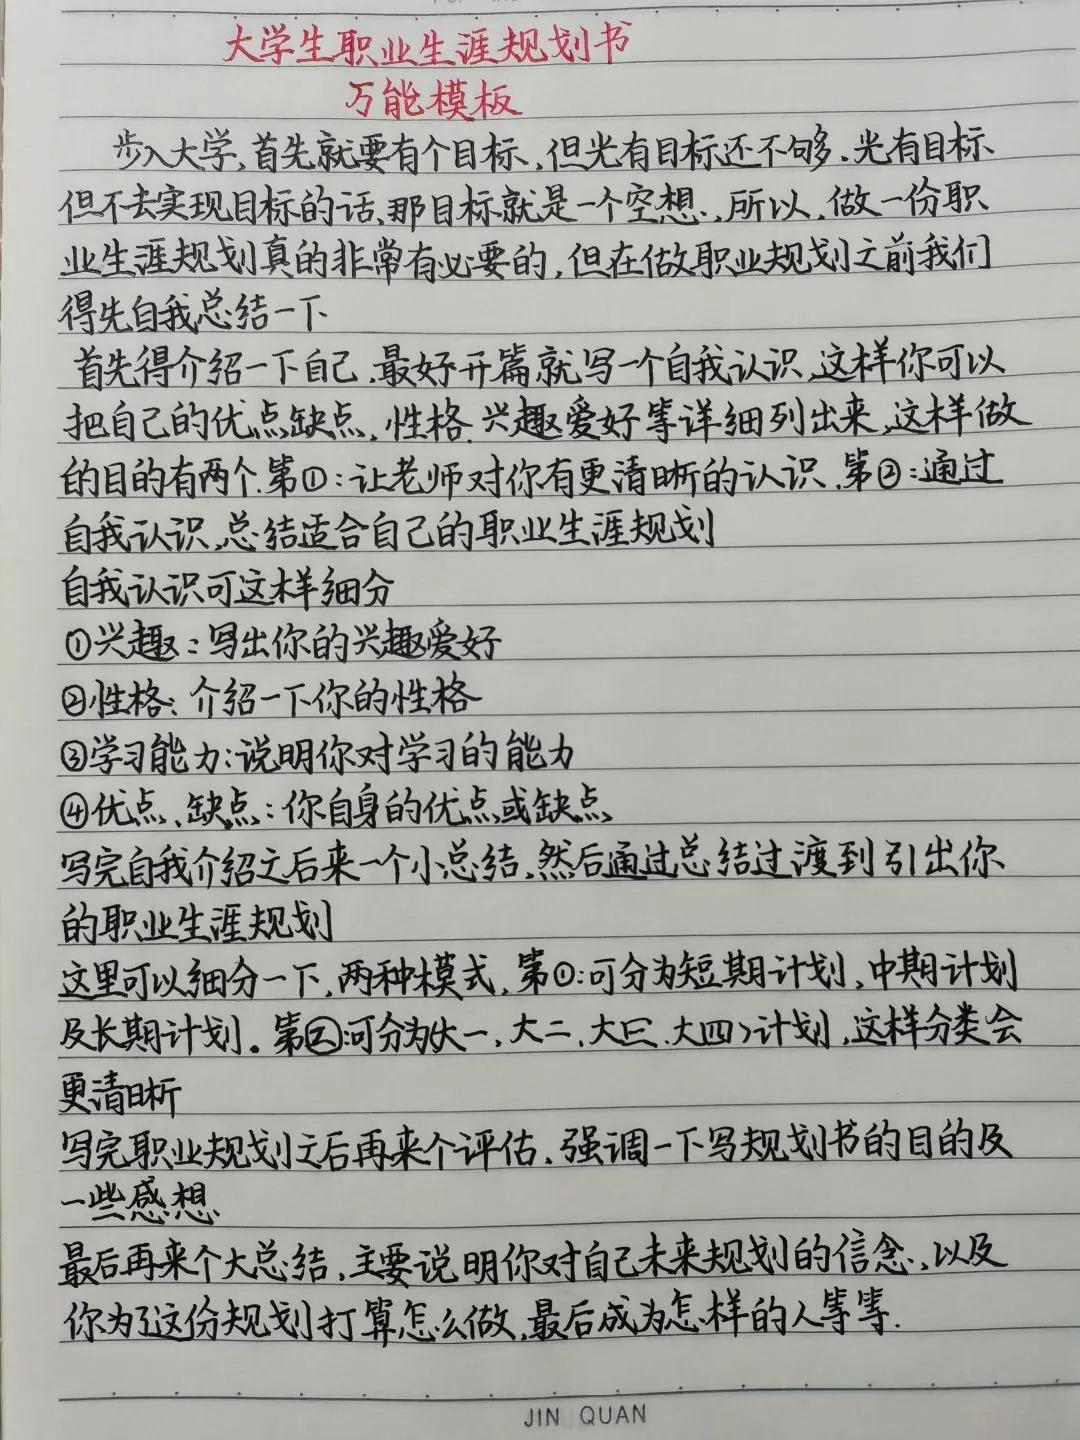 大学生职业生涯规划书
万能模板
步入大学,首先就要有个目标,但光有目标还不够.光有目标
但不去实现目标的话,那目标就是一个空想.,所以,做一份职
业生涯规划真的非常有必要的,但在做职业规划之前我们
得先自我总结一下
首先得介绍一下自己.最好开篇就写一个自我认识,这样你可以
把自己的优点缺点,性格.兴趣爱好等详细列出来,这样做
的目的有两个.第①:让老师对你有更清晰的认识.第②:通过
自我认识,总结适合自己的职业生涯规划
自我认识可这样细分
①兴趣:写出你的兴趣爱好
②性格:介绍一下你的性格
③学习能力:说明你对学习的能力
④优点、缺点:你自身的优点或缺点
写完自我介绍之后来一个小总结,然后通过总结过渡到引出你
的职业生涯规划
这里可以细分一下,两种模式,第①:可分为短期计划,中期计划
及长期计划。第②:可分为大一,大二,大三、大四计划,这样分类会
更清晰
写完职业规划之后再来个评估.强调一下写规划书的目的及
一些感想
最后再来个大总结,主要说明你对自己未来规划的信念,以及
你为了这份规划打算怎么做,最后成为怎样的人等等.
JIN QUAN